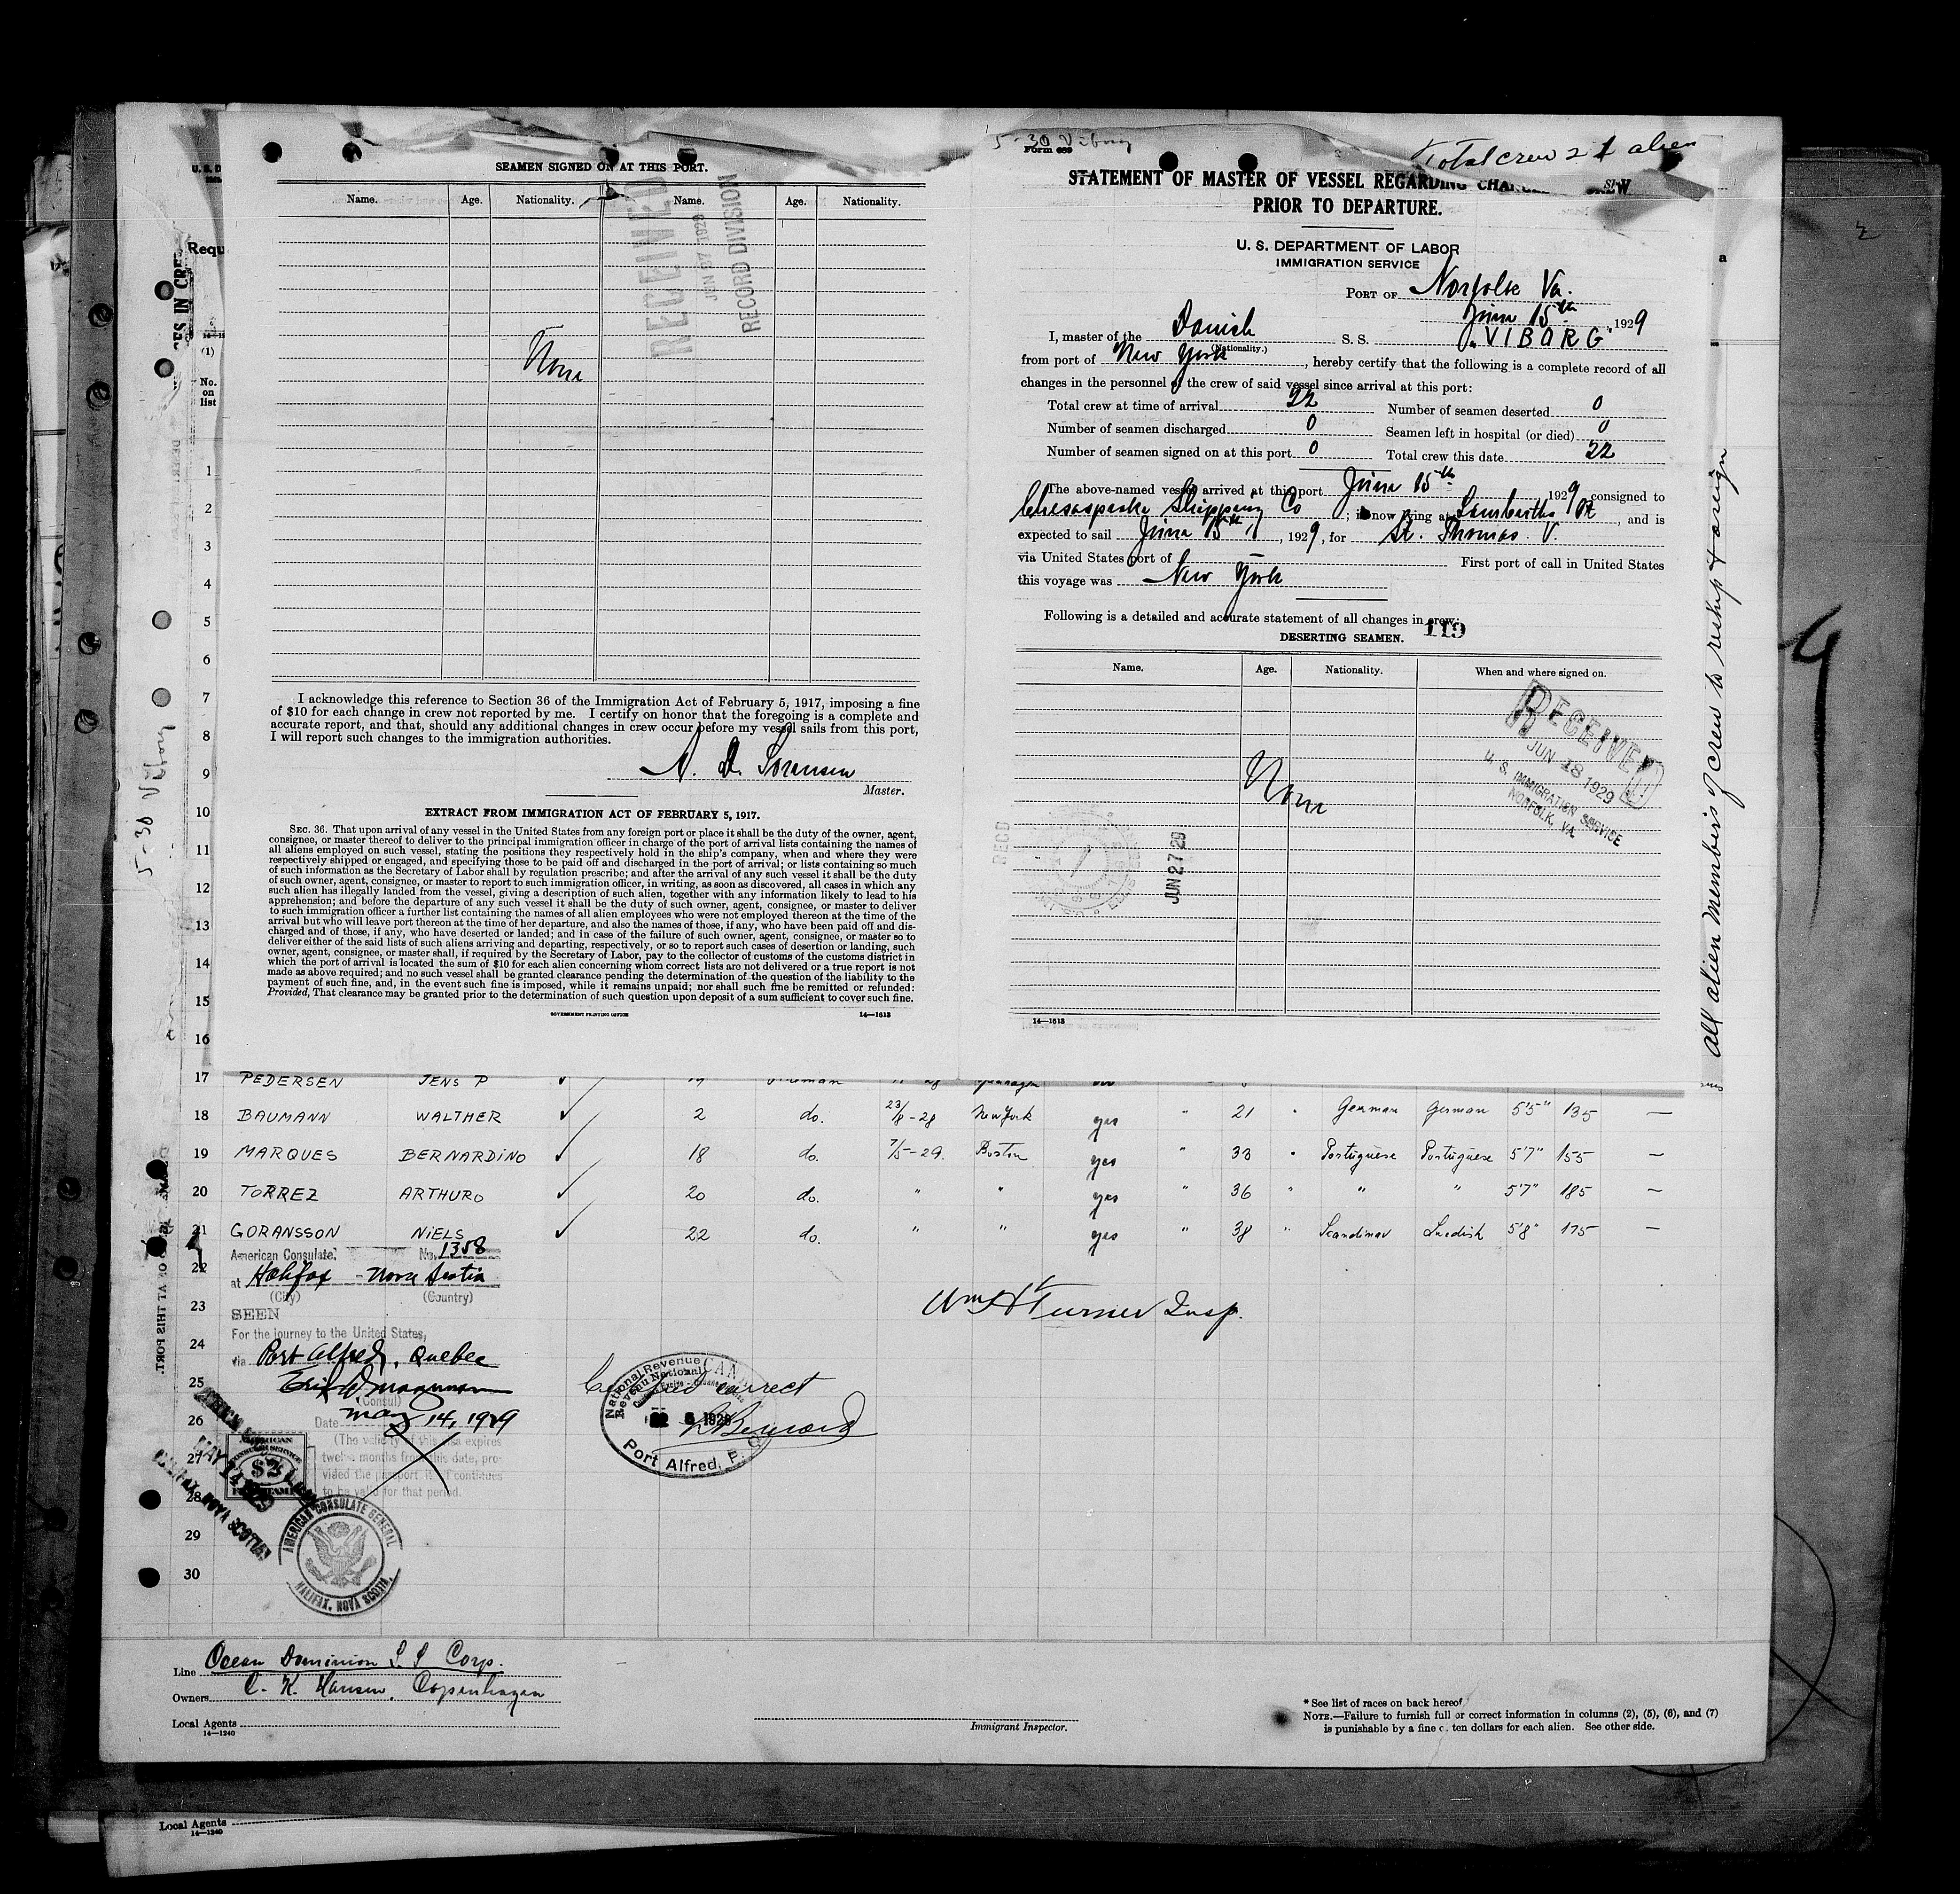 SEAMEN SIGNED ON AT THIS PORT.
Name. Age. Nationality. Name. Age. Nationality.
RECEIVED
JUN 27 1929
RECORD DIVISION
None
I acknowledge this reference to Section 36 of the Immigration Act of February 5, 1917, imposing a fine
of $10 for each change in crew not reported by me. I certify on honor that the foregoing is a complete and
accurate report, and that, should any additional changes in crew occur before my vessel sails from this port,
I will report such changes to the immigration authorities.
A. D. Sorensen
Master.
EXTRACT FROM IMMIGRATION ACT OF FEBRUARY 5, 1917.
SEC. 36. That upon arrival of any vessel in the United States from any foreign port or place it shall be the duty of the owner, agent,
consignee, or master thereof to deliver to the principal immigration officer in charge of the port of arrival lists containing the names of
all aliens employed on such vessel, stating the positions they respectively hold in the ship's company, when and where they were
respectively shipped or engaged, and specifying those to be paid off and discharged in the port of arrival; or lists containing so much
of such information as the Secretary of Labor shall by regulation prescribe; and after the arrival of any such vessel it shall be the duty
of such owner, agent, consignee, or master to report to such immigration officer, in writing, as soon as discovered, all cases in which any
such alien has illegally landed from the vessel, giving a description of such alien, together with any information likely to lead to his
apprehension; and before the departure of any such vessel it shall be the duty of such owner, agent, consignee, or master to deliver
to such immigration officer a further list containing the names of all alien employees who were not employed thereon at the time of the
arrival but who will leave port thereon at the time of her departure, and also the names of those, if any, who have been paid off and dis-
charged and of those, if any, who have deserted or landed; and in case of the failure of such owner, agent, consignee, or master so to
deliver either of the said lists of such aliens arriving and departing, respectively, or so to report such cases of desertion or landing, such
owner, agent, consignee, or master shall, if required by the Secretary of Labor, pay to the collector of customs of the customs district in
which the port of arrival is located the sum of $10 for each alien concerning whom correct lists are not delivered or a true report is not
made as above required; and no such vessel shall be granted clearance pending the determination of the question of the liability to the
payment of such fine, and, in the event such fine is imposed, while it remains unpaid; nor shall such fine be remitted or refunded:
Provided, That clearance may be granted prior to the determination of such question upon deposit of a sum sufficient to cover such fine.
GOVERNMENT PRINTING OFFICE 14—1613
5-30 Viborg
Form 689
Total crew 21 alien
STATEMENT OF MASTER OF VESSEL REGARDING
PRIOR TO DEPARTURE.
U. S. DEPARTMENT OF LABOR
IMMIGRATION SERVICE
PORT OF Norfolk Va.
June 15th, 1929
I, master of the Danish S. S. "VIBORG"
(Nationality.)
from port of New York, hereby certify that the following is a complete record of all
changes in the personnel of the crew of said vessel since arrival at this port:
Total crew at time of arrival 22 Number of seamen deserted 0
Number of seamen discharged 0 Seamen left in hospital (or died) 0
Number of seamen signed on at this port 0 Total crew this date 22
The above-named vessel arrived at this port June 15th 1929 consigned to
Chesaspeake Shipping Co; is now lying at Lambertts Pt, and is
expected to sail June 15th, 1929, for St. Thomas. V.
via United States port of First port of call in United States
this voyage was New York
Following is a detailed and accurate statement of all changes in crew:
119
DESERTING SEAMEN.
Name. Age. Nationality. When and where signed on.
RECEIVED
JUN 18 1929
U. S. IMMIGRATION SERVICE
NORFOLK, VA.
None
RECD
JUN 27 29
14—1613
All alien members of crew to reship foreign
5-30 Viborg
Requ
(1)
No.
on
list
1
2
3
4
5
6
7
8
9
10
11
12
13
14
15
16
17 PEDERSEN JENS P
18 BAUMANN WALTHER 2 do. 23/8-28 New York yes " 21 " German German 5'5" 135 —
19 MARQUES BERNARDINO 18 do. 7/5-29. Boston yes " 33 " Portuguese Portuguese 5'7" 155 —
20 TORREZ ARTHURO 20 do. " " yes " 36 " " " 5'7" 185 —
21 GORANSSON NIELS 22 do. " " yes " 38 " Scandinav Swedish 5'8" 175 —
22
23
24
25
26
27
28
29
30
American Consulate. No. 1358
at Halifax - Nova Scotia
(City) (Country)
SEEN
For the journey to the United States,
via Port Alfred, Quebec
(Consul)
Date May 14, 1929
(The validity of this visa expires
twelve months from this date, pro-
vided the passport it continues
to be valid for that period.
AMERICAN
$2
MAY 14 1929
HALIFAX, NOVA SCOTIA
AMERICAN CONSULATE GENERAL
HALIFAX, NOVA SCOTIA.
Wm H Turner Insp.
Certified correct
National Revenue
Revenu National
CANADA
1929
Port Alfred, P. Q.
Line Ocean Dominion S. S Corp.
Owners C. K. Hansen, Copenhagen
Local Agents
14—1240
Immigrant Inspector.
* See list of races on back hereof
NOTE.—Failure to furnish full or correct information in columns (2), (5), (6), and (7)
is punishable by a fine of ten dollars for each alien. See other side.
Local Agents
14—1240